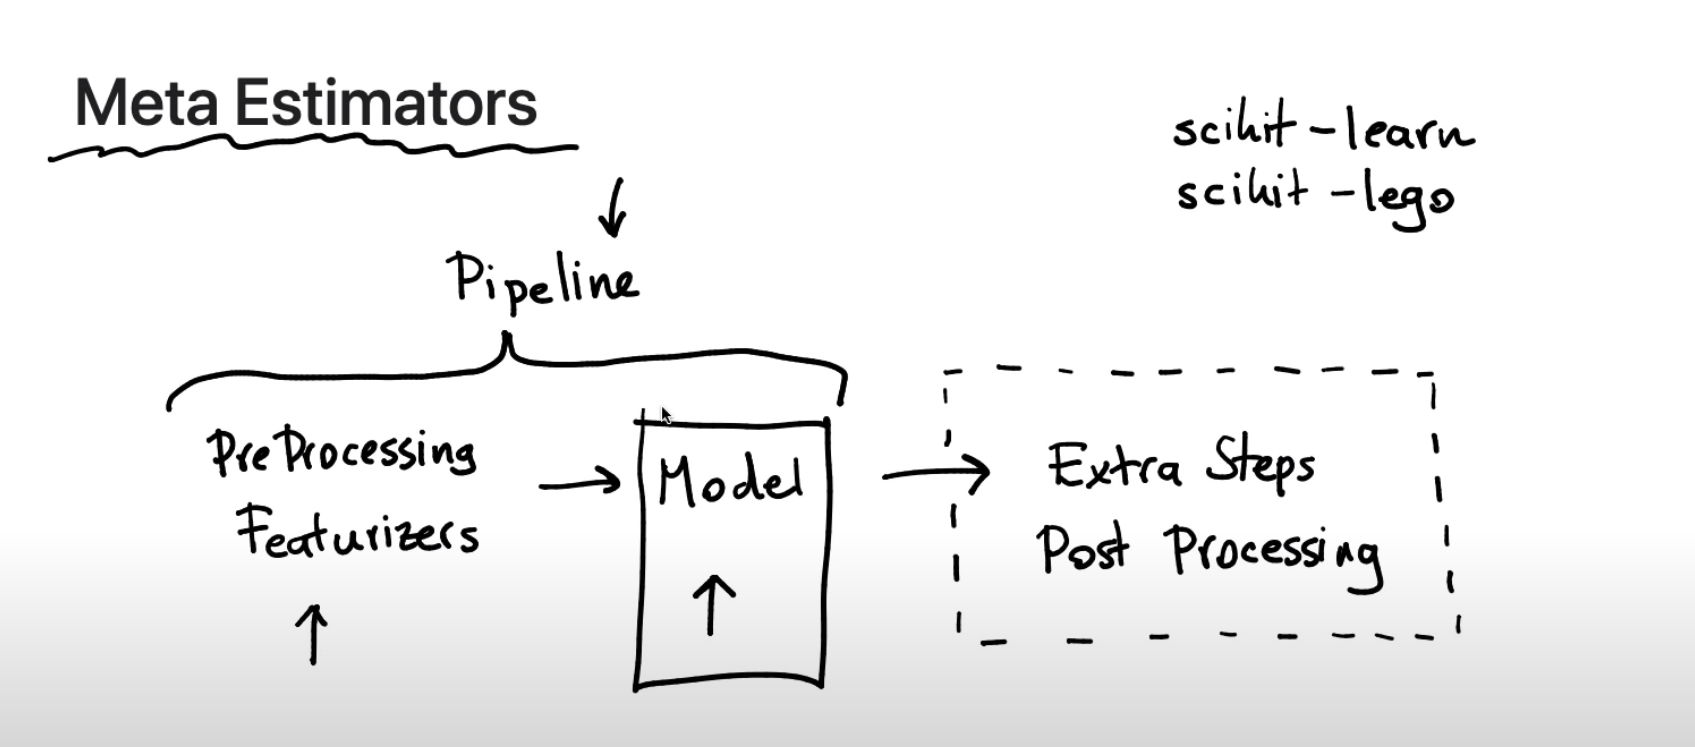 Meta Estimators
scikit-learn
scikit-lego
Pipeline
PreProcessing
Featurizers
Model
Extra Steps
Post Processing